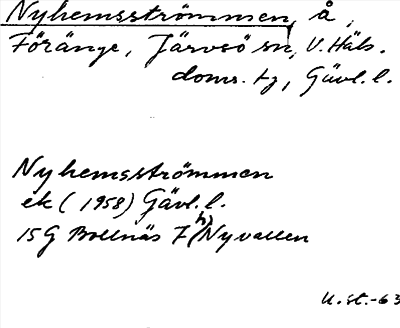 Nyhemsströmmen, å,
Föränge, Järvsö sn, V. Häls.
doms. tg, Gävl. l.
Nyhemsströmmen
ek (1958) Gävl. l.
15G Bollnäs 7(h) Nyvallen
U. st. -63